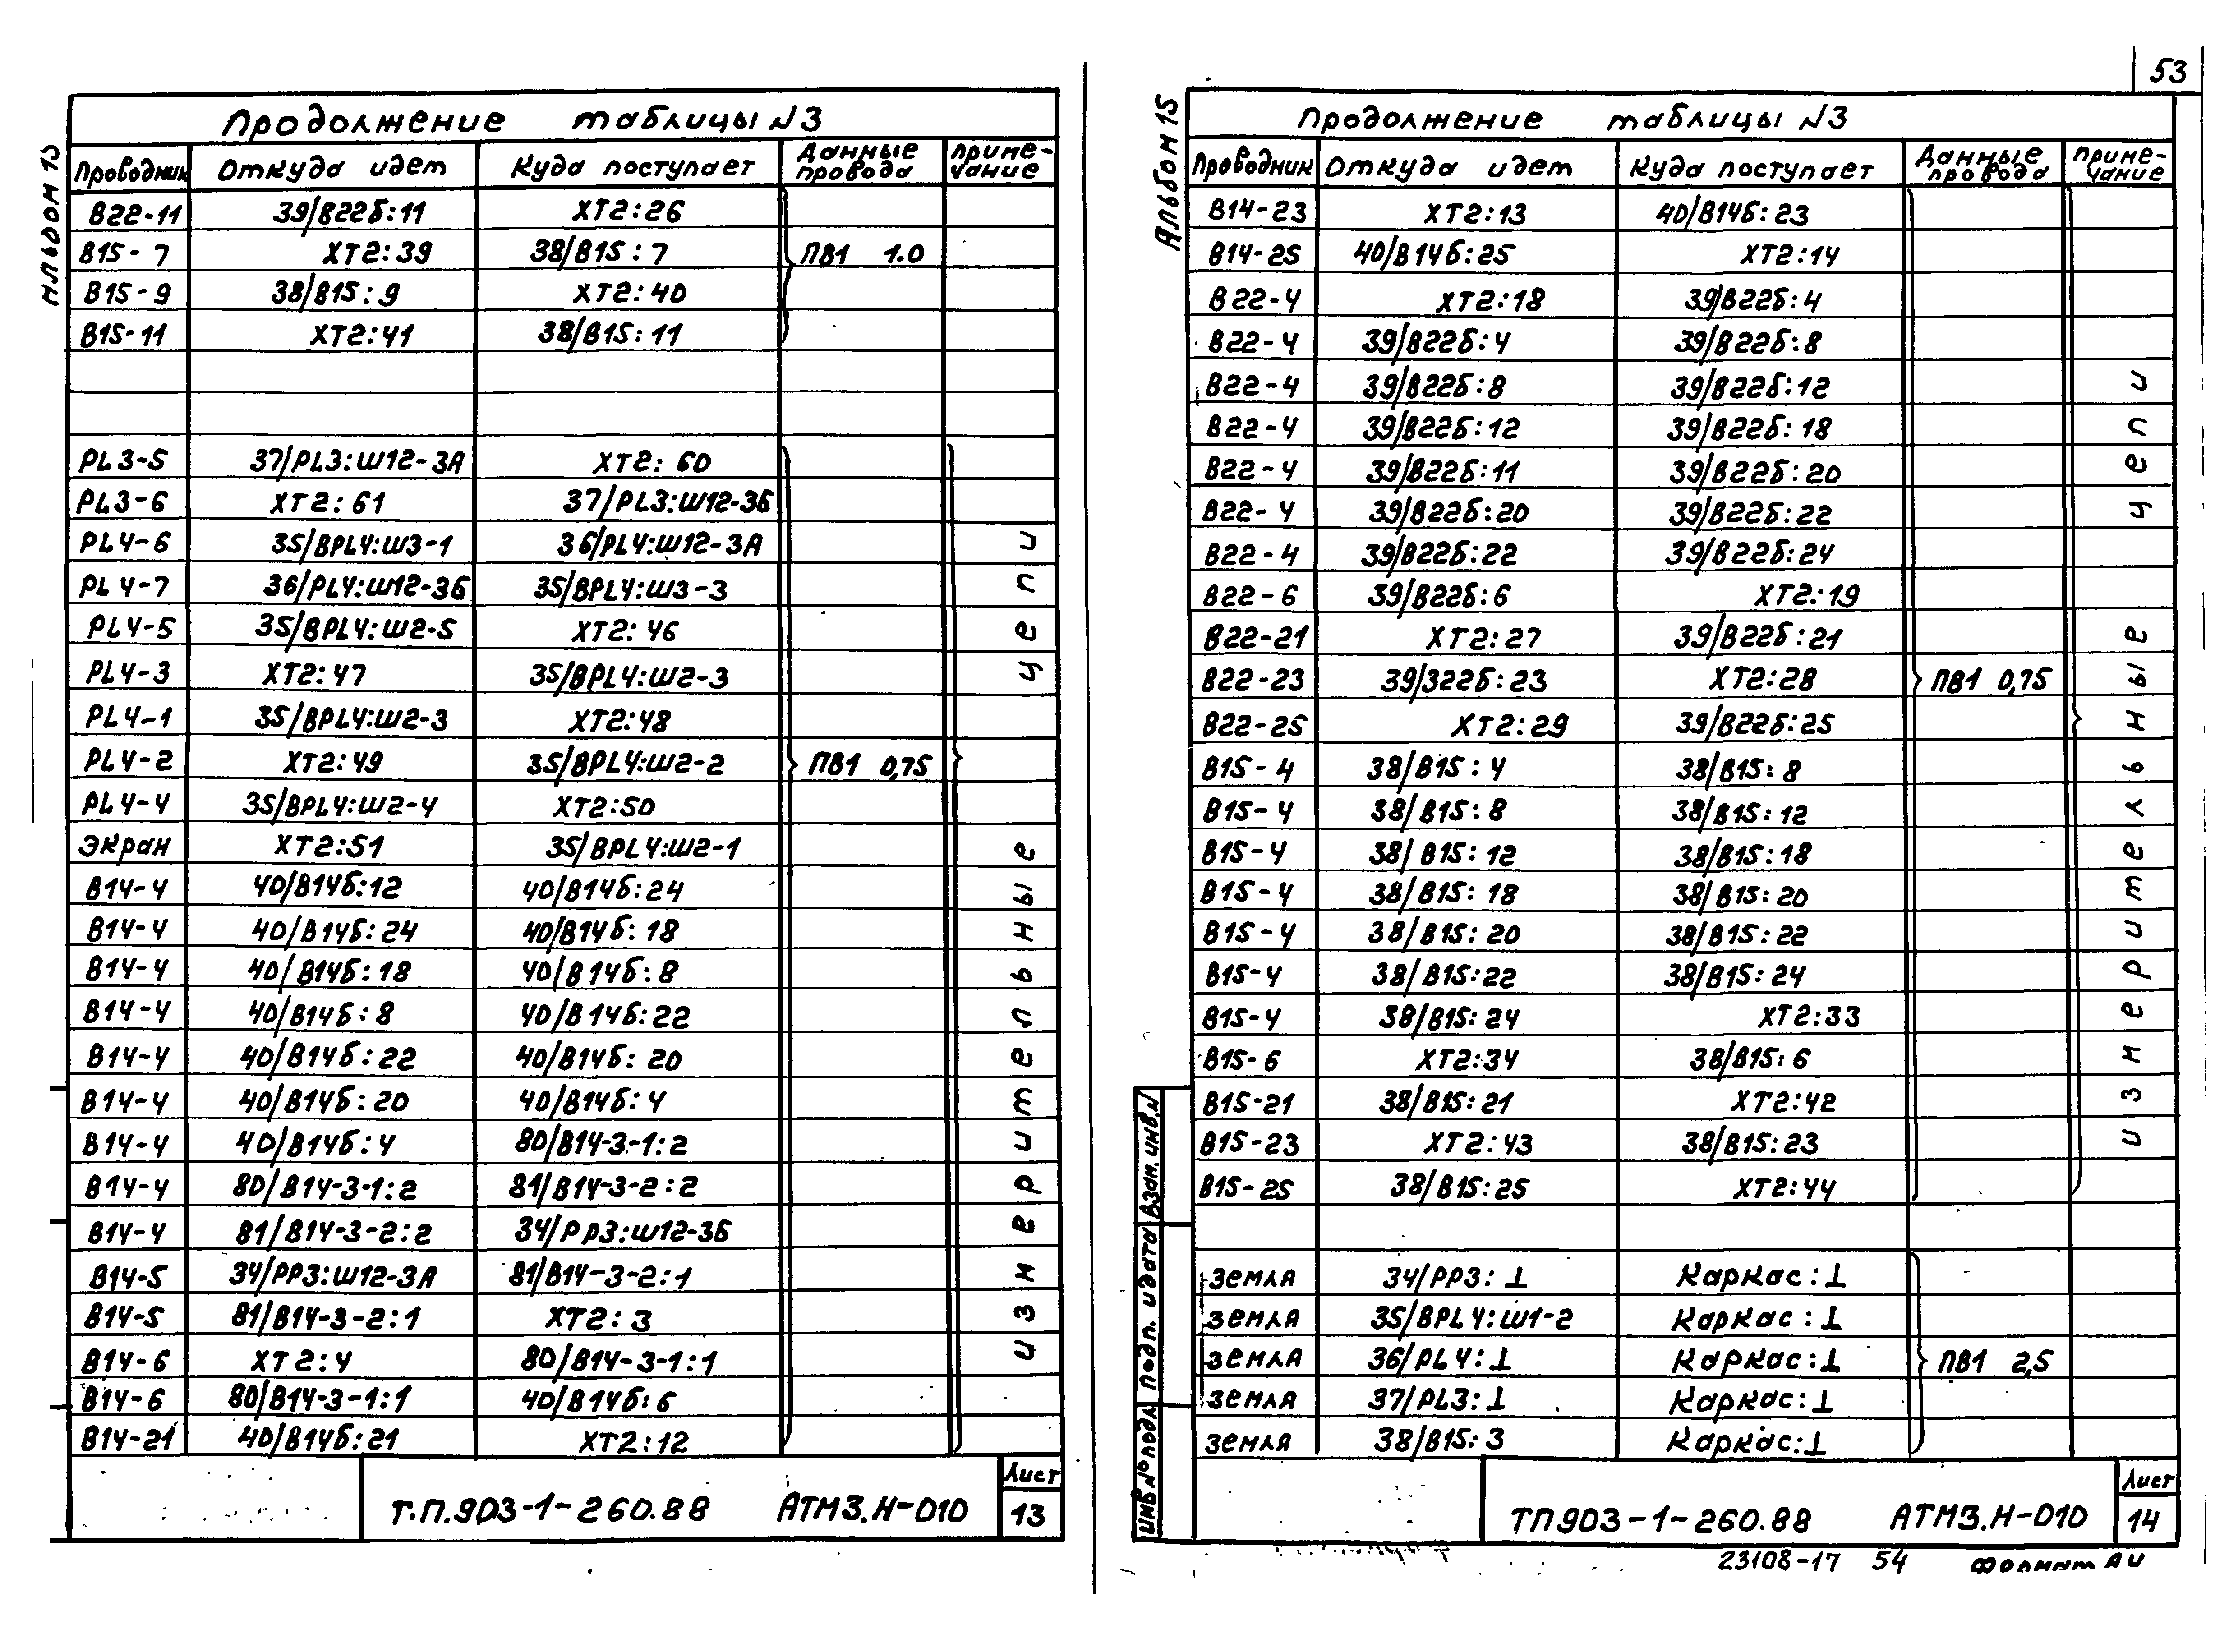 53
Альбом 15
Продолжение таблицы N3
Проводник Откуда идет Куда поступает Данные провода Примечание
В22-11 39/В22б:11 ХТ2:26
В15-7 ХТ2:39 38/В15:7 ПВ1 1.0
В15-9 38/В15:9 ХТ2:40
В15-11 ХТ2:41 38/В15:11
PL3-5 37/PL3:Ш12-3А ХТ2:60
PL3-6 ХТ2:61 37/PL3:Ш12-3Б
PL4-6 35/BPL4:Ш3-1 36/PL4:Ш12-3А
PL4-7 36/PL4:Ш12-3Б 35/BPL4:Ш3-3
PL4-5 35/BPL4:Ш2-5 ХТ2:46
PL4-3 ХТ2:47 35/BPL4:Ш2-3
PL4-1 35/BPL4:Ш2-3 ХТ2:48
PL4-2 ХТ2:49 35/BPL4:Ш2-2 ПВ1 0,75
PL4-4 35/BPL4:Ш2-4 ХТ2:50
Экран ХТ2:51 35/BPL4:Ш2-1
В14-4 40/В14б:12 40/В14б:24
В14-4 40/В14б:24 40/В14б:18
В14-4 40/В14б:18 40/В14б:8
В14-4 40/В14б:8 40/В14б:22
В14-4 40/В14б:22 40/В14б:20
В14-4 40/В14б:20 40/В14б:4
В14-4 40/В14б:4 80/В14-3-1:2
В14-4 80/В14-3-1:2 81/В14-3-2:2
В14-4 81/В14-3-2:2 34/РР3:Ш12-3Б
В14-5 34/РР3:Ш12-3А 81/В14-3-2:1
В14-5 81/В14-3-2:1 ХТ2:3
В14-6 ХТ2:4 80/В14-3-1:1
В14-6 80/В14-3-1:1 40/В14б:6
В14-21 40/В14б:21 ХТ2:12
измерительные цепи
Т.П.903-1-260.88 АТМ3.Н-010
Лист
13
Альбом 15
Продолжение таблицы N3
Проводник Откуда идет Куда поступает Данные провода Примечание
В14-23 ХТ2:13 40/В14б:23
В14-25 40/В14б:25 ХТ2:14
В22-4 ХТ2:18 39/В22б:4
В22-4 39/В22б:4 39/В22б:8
В22-4 39/В22б:8 39/В22б:12
В22-4 39/В22б:12 39/В22б:18
В22-4 39/В22б:11 39/В22б:20
В22-4 39/В22б:20 39/В22б:22
В22-4 39/В22б:22 39/В22б:24
В22-6 39/В22б:6 ХТ2:19
В22-21 ХТ2:27 39/В22б:21
В22-23 39/322б:23 ХТ2:28 ПВ1 0,75
В22-25 ХТ2:29 39/В22б:25
В15-4 38/В15:4 38/В15:8
В15-4 38/В15:8 38/В15:12
В15-4 38/В15:12 38/В15:18
В15-4 38/В15:18 38/В15:20
В15-4 38/В15:20 38/В15:22
В15-4 38/В15:22 38/В15:24
В15-4 38/В15:24 ХТ2:33
В15-6 ХТ2:34 38/В15:6
В15-21 38/В15:21 ХТ2:42
В15-23 ХТ2:43 38/В15:23
В15-25 38/В15:25 ХТ2:44
измерительные цепи
земля 34/РР3:⊥ Каркас:⊥
земля 35/BPL4:Ш1-2 Каркас:⊥
земля 36/PL4:⊥ Каркас:⊥ ПВ1 2,5
земля 37/PL3:⊥ Каркас:⊥
земля 38/В15:3 Каркас:⊥
Инв № подл Подп. и дата Взам. инв. N
ТП903-1-260.88 АТМ3.Н-010
Лист
14
23108-17 54 Формат А4